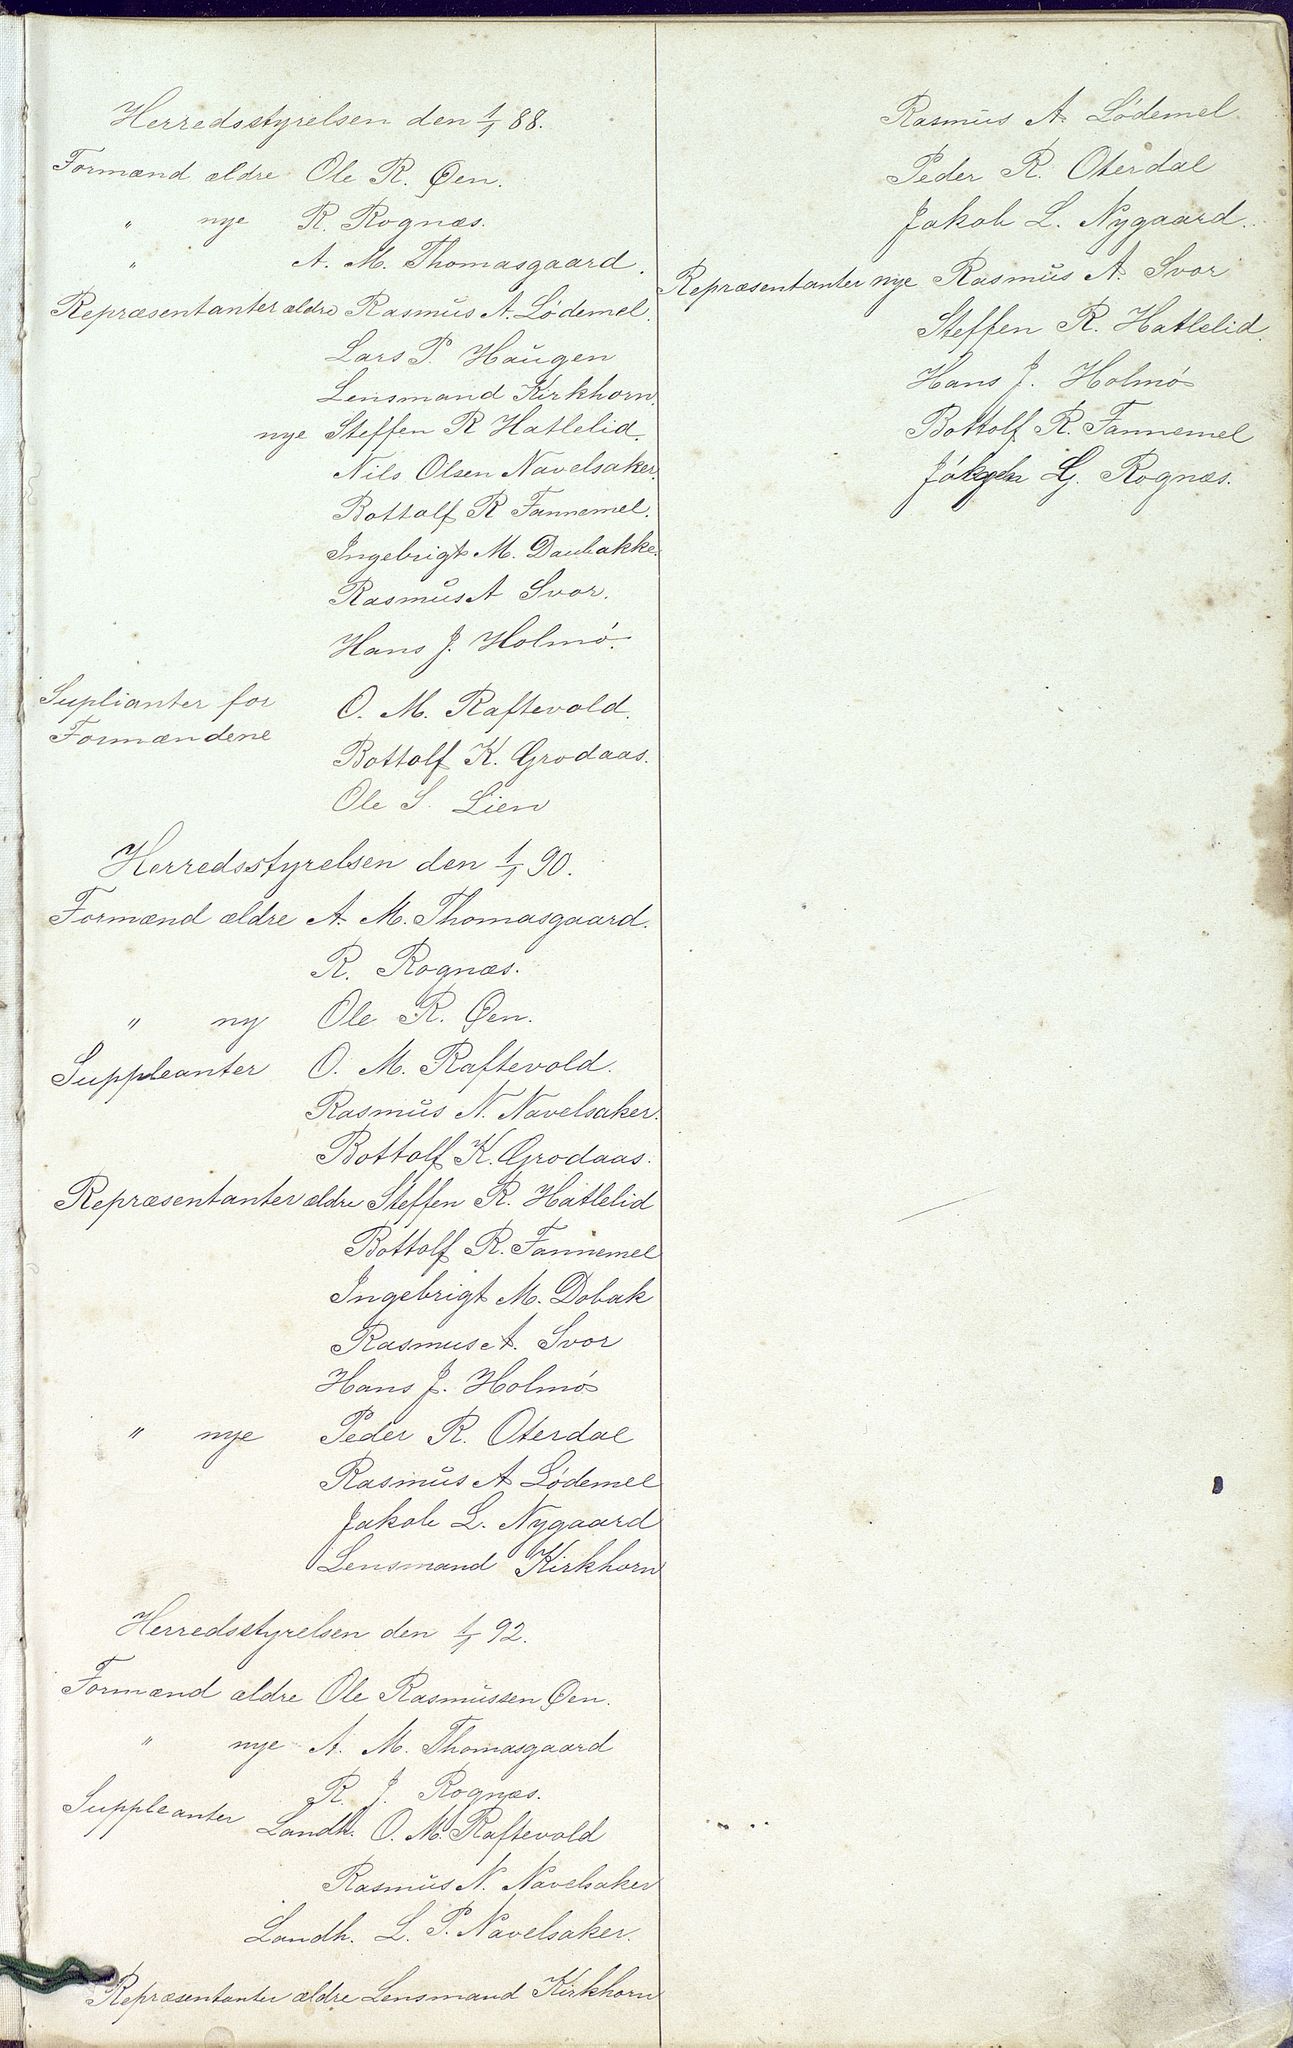 Herredsstyrelsen den 1/1 88.
Formænd ældre Ole R. Øen.
" nye R. Rognæs.
" A. M. Thomasgaard.
Repræsentanter ældre Rasmus A. Lødemel.
Lars P. Haugen
Lensmand Kirkhorn.
nye Steffen R Hatlelid.
Nils Olsen Navelsaker.
Bottolf R Fannemel.
Ingebrigt M. Daubakke.
Rasmus A Svor.
Hans J. Holmö.
Suplianter for
Formændene
O. M. Raftevold.
Bottolf K. Grodaas.
Ole S. Lien
Herredsstyrelsen den 1/1 90.
Formænd ældre A. M. Thomasgaard.
R. Rognæs.
" ny Ole R. Øen.
Suppleanter O. M. Raftevold.
Rasmus N. Navelsaker.
Bottolf K. Grodaas.
Repræsentanter ældre Steffen R. Hatlelid
Bottolf R. Fannemel
Ingebrigt M. Dobak
Rasmus A. Svor
Hans J. Holmö
" nye Peder R. Oterdal
Rasmus A Lödemel
Jakob L. Nygaard
Lensmand Kirkhorn
Herredsstyrelsen den 1/1 92.
Formænd ældre Ole Rasmussen Øen.
" nye A. M. Thomasgaard
R. J. Rognæs.
Suppleanter Landh. O. M. Raftevold
Rasmus N. Navelsaker
Landh. L. P. Navelsaker.
Repræsentanter ældre Lensmand Kirkhorn
Rasmus A. Lödemel
Peder R. Oterdal
Jakob L. Nygaard.
Repræsentanter nye Rasmus A. Svor
Steffen R. Hatlelid
Hans J. Holmö
Bottolf R. Fannemel
G. Rognæs.